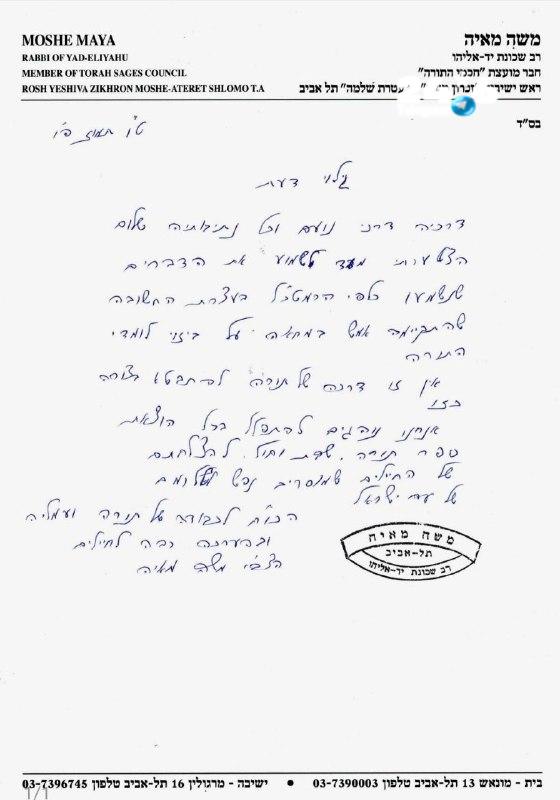 MOSHE MAYA
RABBI OF YAD-ELIYAHU
MEMBER OF TORAH SAGES COUNCIL
ROSH YESHIVA ZIKHRON MOSHE-ATERET SHLOMO T.A
משה מאיה
רב שכונת יד-אליהו
חבר מועצת "חכמי התורה"
ראש ישיבת "זכרון עטרת שלמה" תל אביב
בס"ד
ט"ו תמוז
גלוי דעת
דרכיה דרכי נועם וכל נתיבותיה שלום
הצטערתי מאד לשמוע את הדברים
שנשמעו כלפי הרמטכ"ל בעצרת החשובה
שהתקיימה אמש במחאה על ביזוי לומדי
התורה
אין זו דרכה של תורה להתבטא בצורה
כזו
אנחנו נוהגים להתפלל בכל הוצאת
ספר תורה, שבת וחול, להצלחתם
של החיילים שמוסרים נפש לשלומם
של עם ישראל
הכו"ח לכבודה של תורה ועמליה
ובהערכה רבה לחיילים
הצב"י משה מאיה
משה מאיה
תל-אביב
רב שכונת יד-אליהו
בית - מונאש 13 תל-אביב טלפון 03-7390003 • ישיבה - מרגולין 16 תל-אביב טלפון 03-7396745
1/1